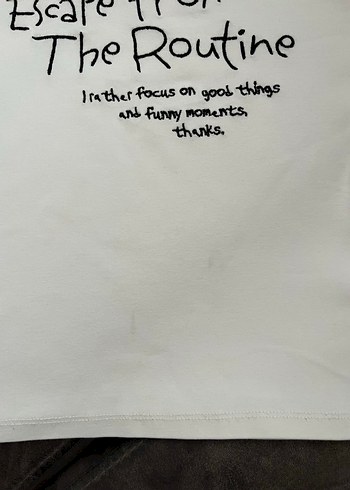 Escape from
The Routine
I rather focus on good things
and funny moments,
thanks.